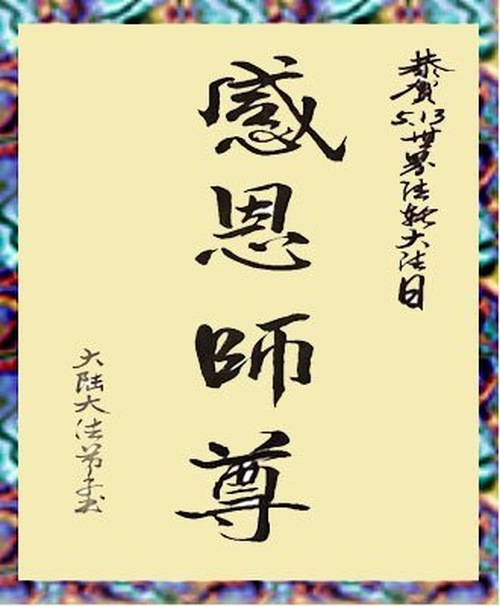 恭賀5.13世界法轮大法日
感恩師尊
大陆大法弟子